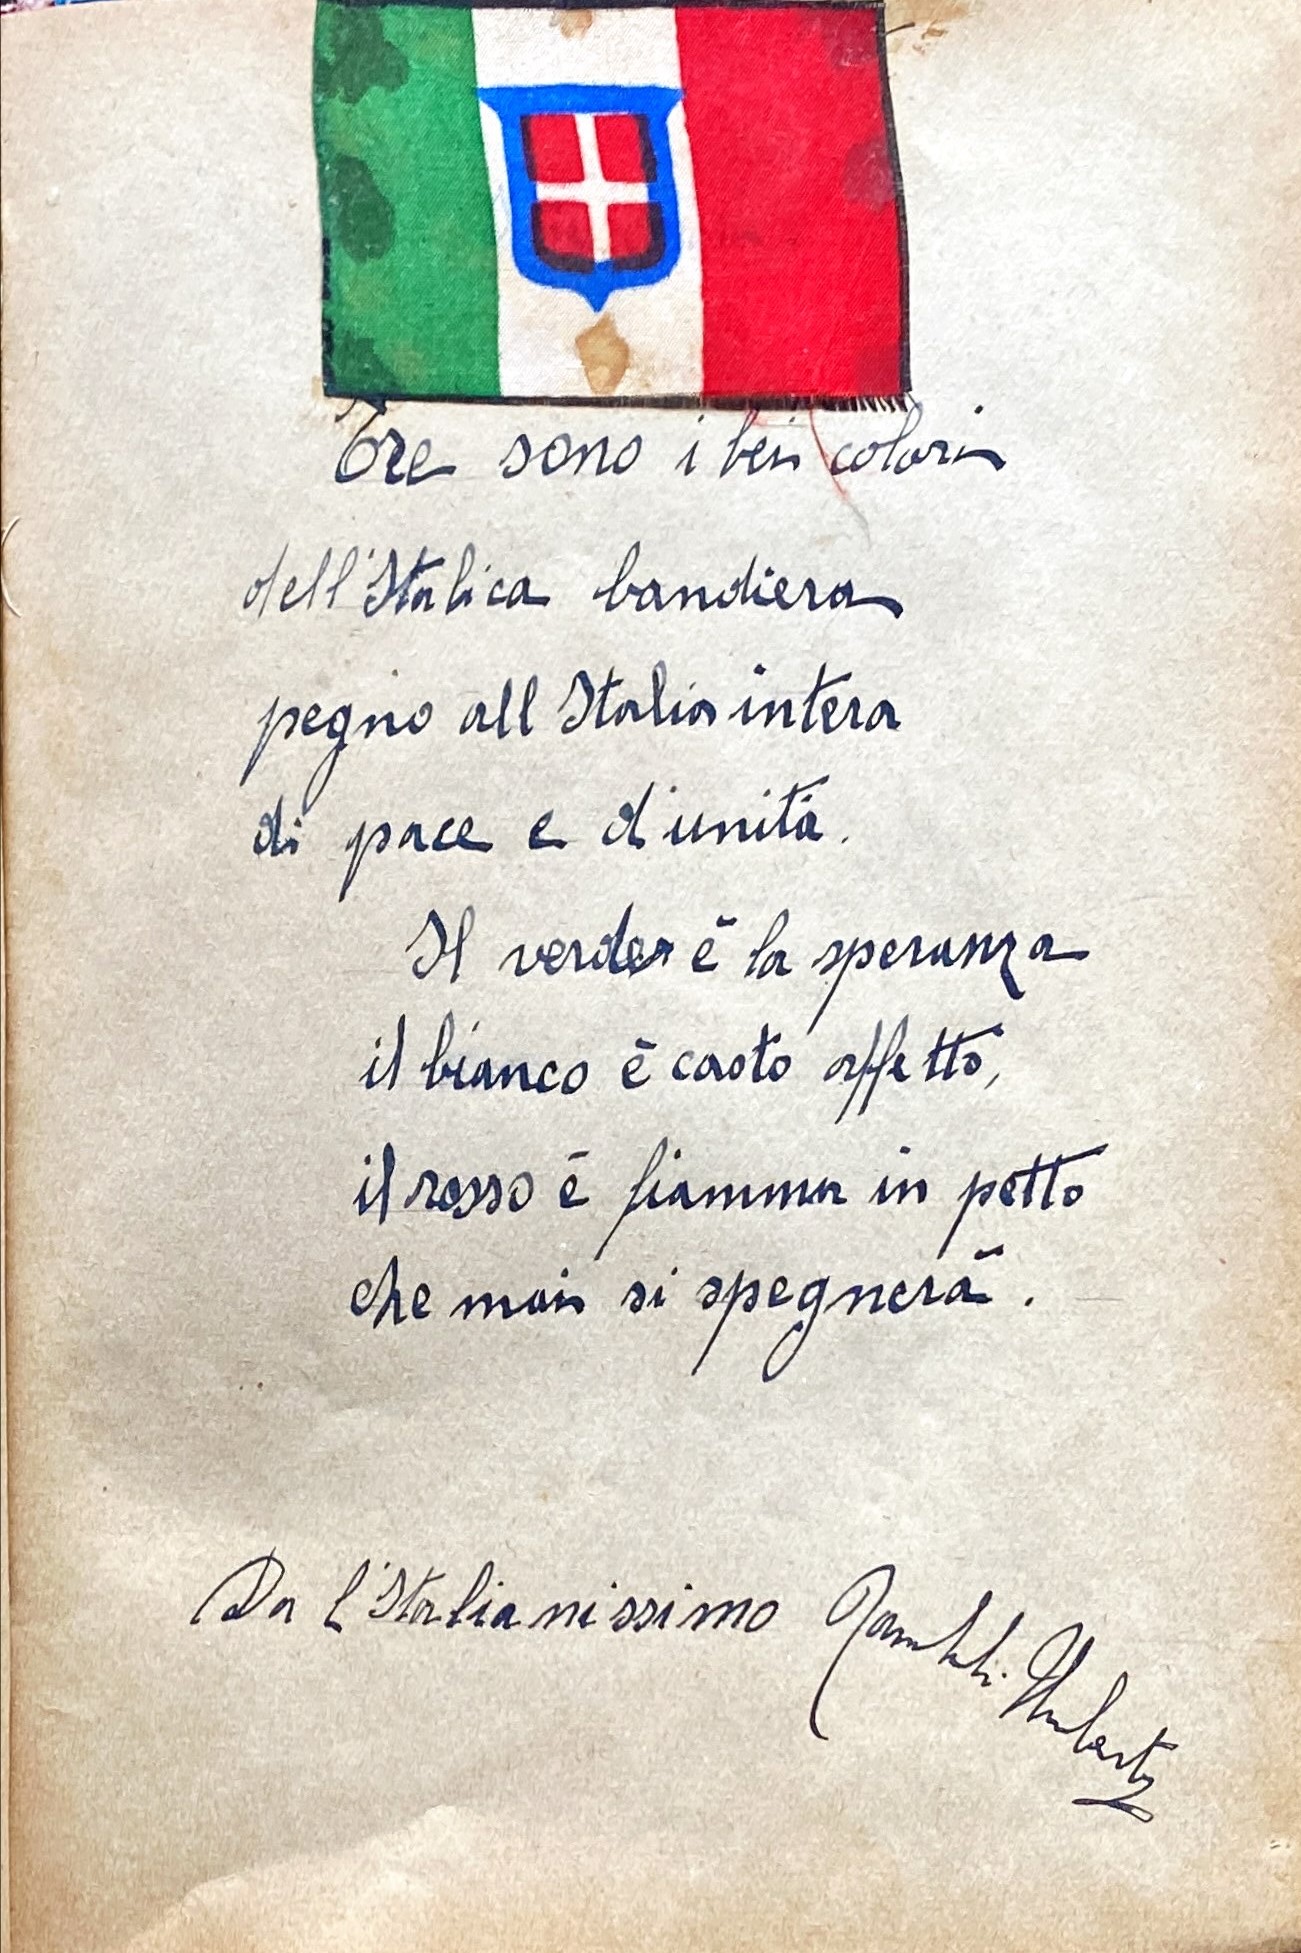 Tre sono i bei colori
dell'Italica bandiera
pegno all Italia intera
di pace e d'unità.
Il verde è la speranza
il bianco è casto affetto,
il rosso è fiamma in petto
che mai si spegnerà.
Da l'Italianissimo
Umberto